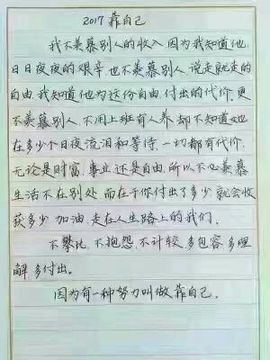 2017 靠自己
我不羡慕别人的收入 因为我知道他
日日夜夜的艰辛 也不羡慕别人 说走就走的
自由 我知道他为这份自由 付出的代价 更
不羡慕别人 不用上班有人养 却不知道她
在多少个日夜流泪和等待 一切都有代价
无论是财富 事业 还是自由 所以不必羡慕
生活不在别处 而在于你付出了多少 就会收
获多少 加油 走在人生路上的我们
不攀比 不抱怨 不计较 多包容 多理
解 多付出.
因为有一种努力叫做靠自己.